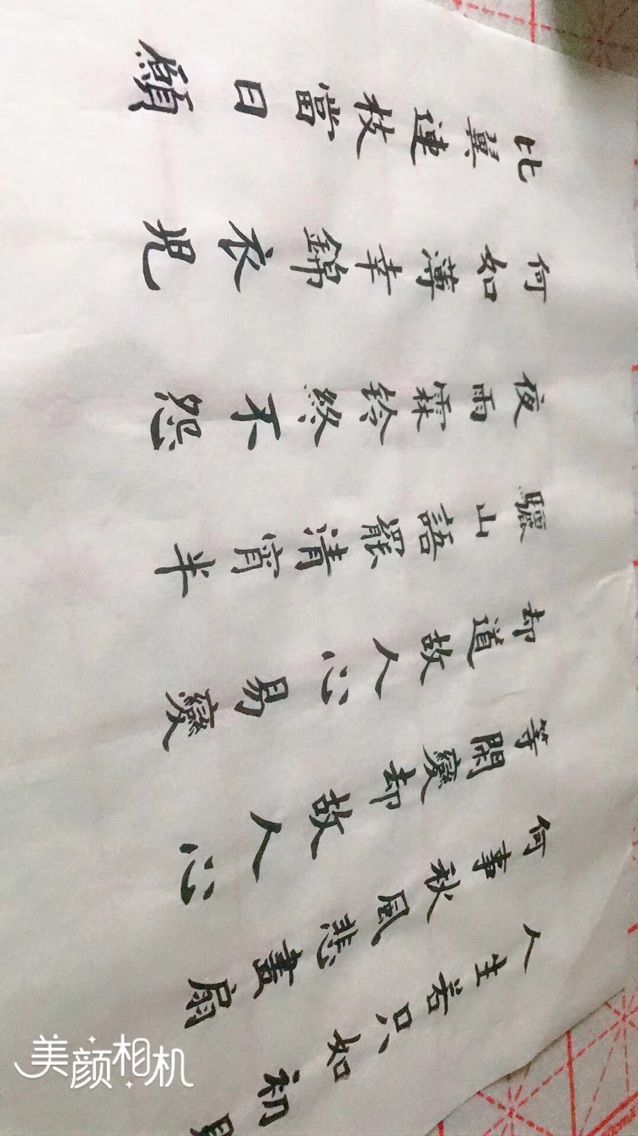 人生若只如初見
何事秋風悲畫扇
等閑變却故人心
却道故人心易變
驪山語罷清宵半
夜雨霖鈴終不怨
何如薄幸錦衣兒
比翼連枝當日願
美颜相机